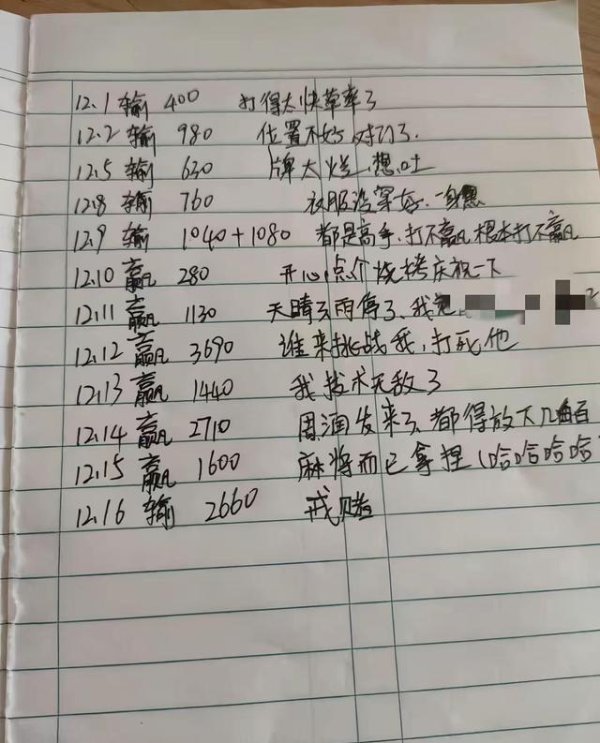 12.1 输 400 打得太快草率了
12.2 输 980 位置不好 对门了.
12.5 输 630 牌太烂.想吐
12.8 输 760 衣服没穿好.一身黑
12.9 输 1040+1080 都是高手.打不赢.根本打不赢
12.10 赢 280 开心点个烧烤庆祝一下
12.11 赢 1130 天晴了雨停了.我
12.12 赢 3690 谁来挑战我.打死他
12.13 赢 1440 我技术无敌了
12.14 赢 2710 周润发来了都得放下几百
12.15 赢 1600 麻将而已拿捏(哈哈哈哈
12.16 输 2660 戒赌